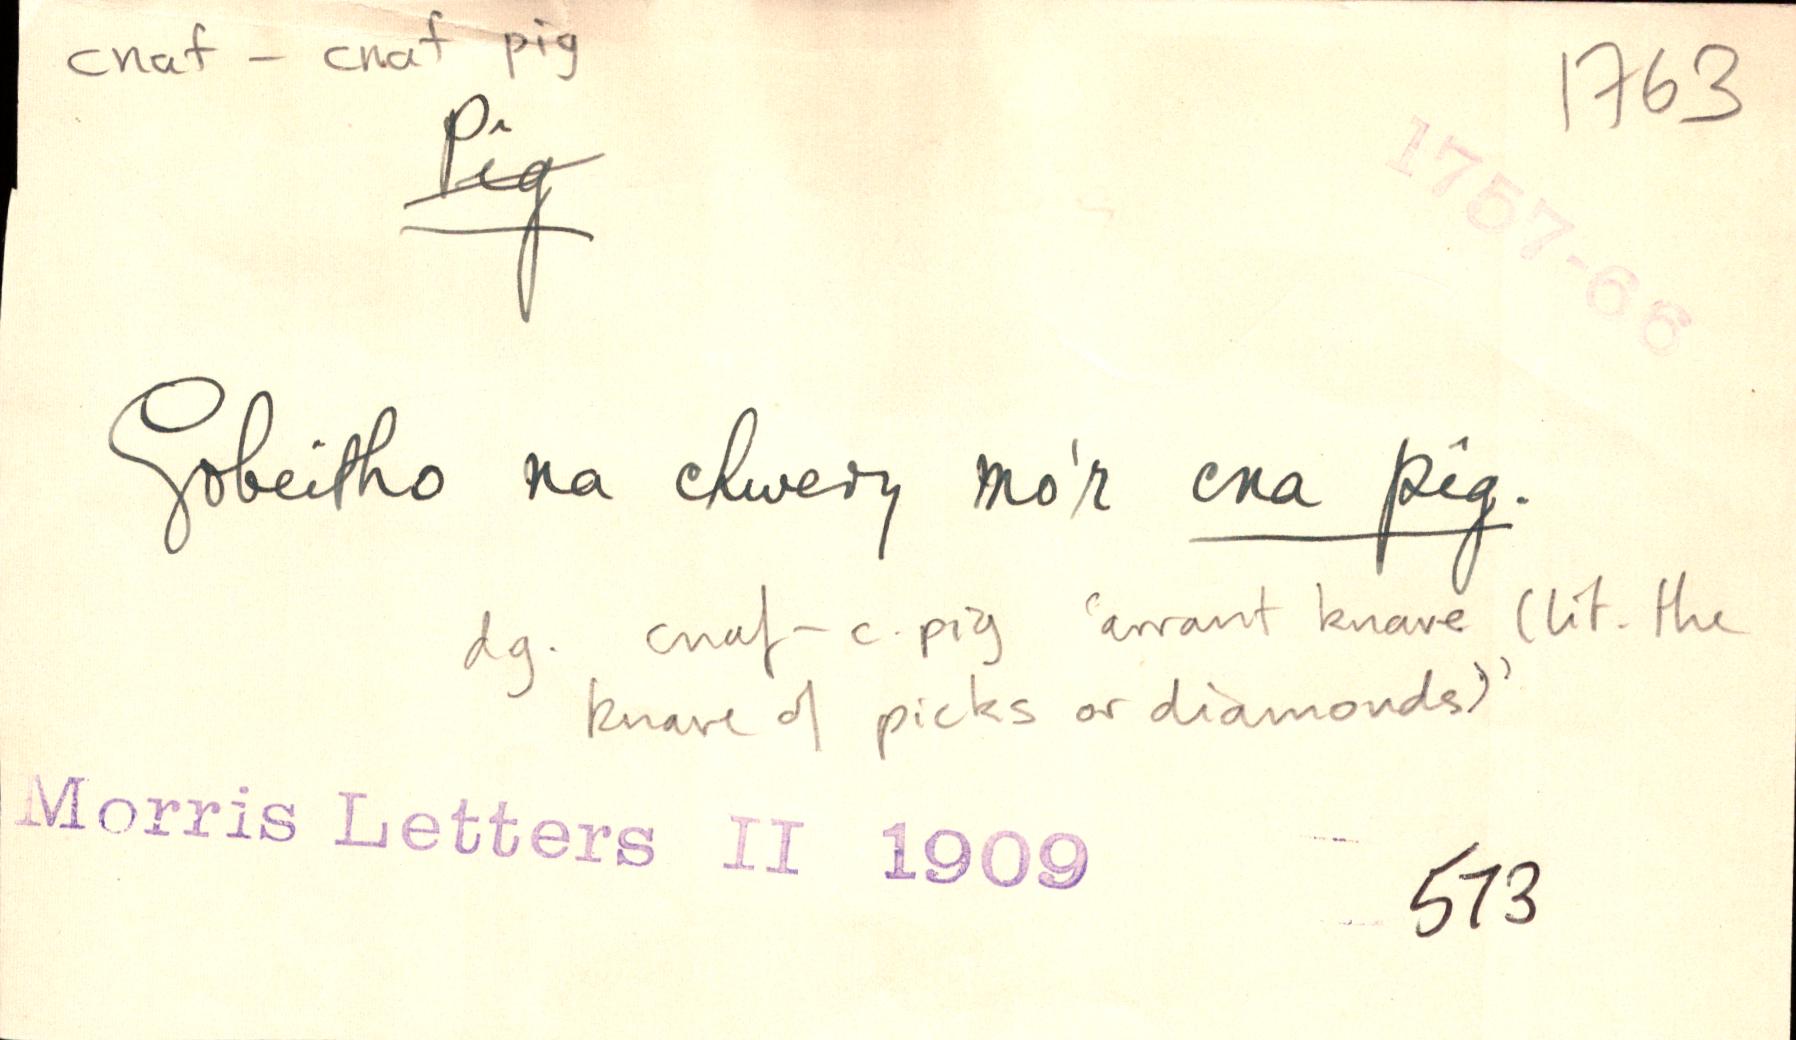 cnaf – cnaf pig
1763
Pîg
1757-66
Gobeitho na chwery mo'r cna pîg.
dg. cnaf – c. pig 'arrant knave (lit. the
knave of picks or diamonds)'
Morris Letters II 1909
573